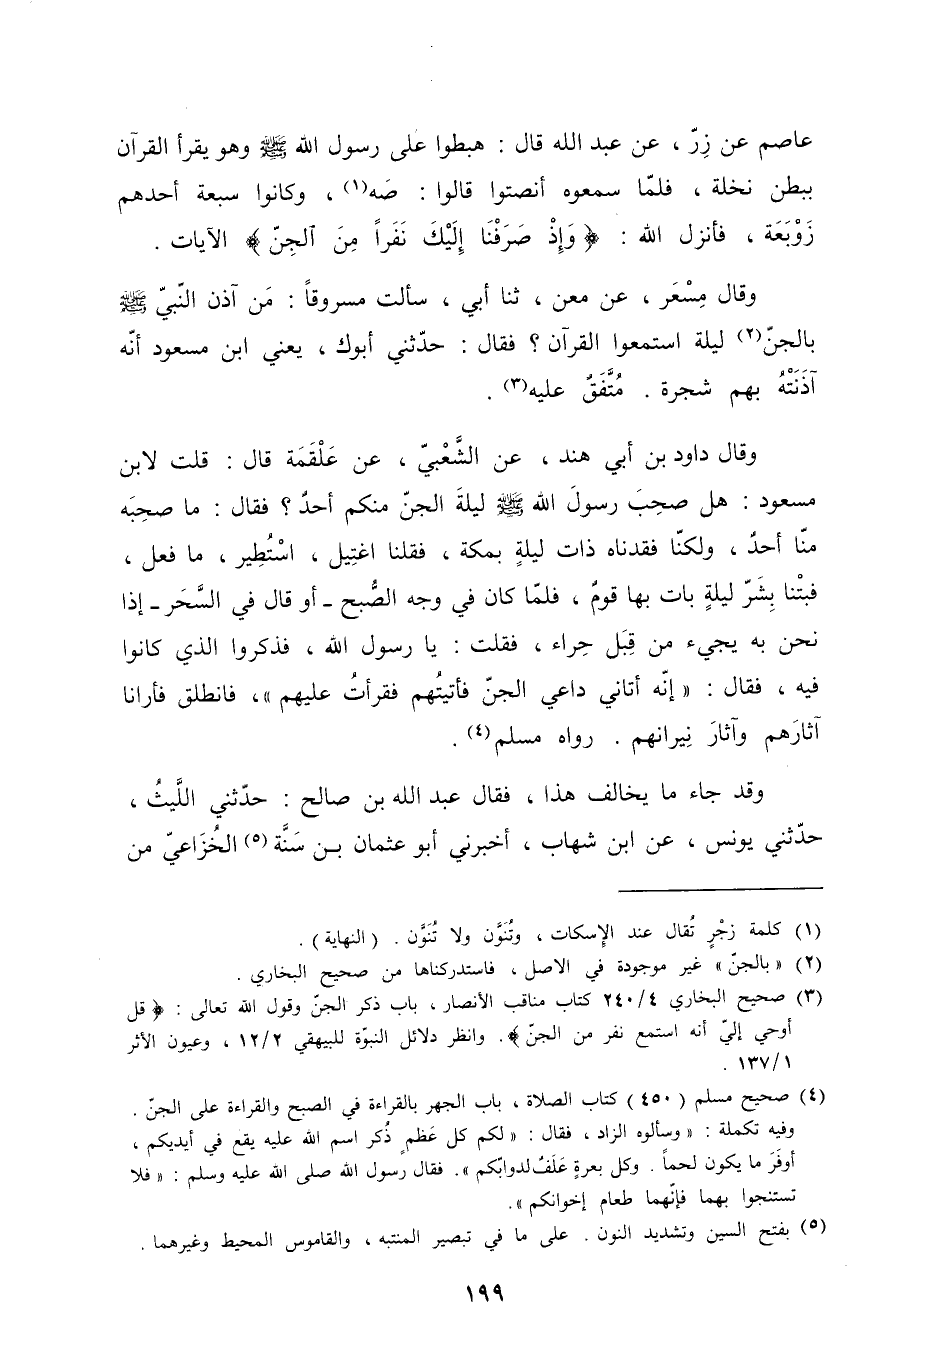 عاصم عن زِرّ ، عن عبد الله قال : هبطوا على رسول الله ﷺ وهو يقرأ القرآن
ببطن نخلة ، فلمّا سمعوه أنصتوا قالوا : صَه(١) ، وكانوا سبعة أحدهم
زَوْبَعَة ، فأنزل الله : ﴿ وَإِذْ صَرَفْنَا إِلَيْكَ نَفَراً مِنَ ٱلجِنّ ﴾ الآيات .
وقال مِسْعَر ، عن معن ، ثنا أبي ، سألت مسروقاً : مَن آذن النّبيّ ﷺ
بالجنّ(٢) ليلة استمعوا القرآن ؟ فقال : حدّثني أبوك ، يعني ابن مسعود أنّه
آذَنَتْهُ بهم شجرة . مُتَّفَقٌ عليه(٣) .
وقال داود بن أبي هند ، عن الشَّعْبيّ ، عن عَلْقَمَة قال : قلت لابن
مسعود : هل صحِبَ رسولَ الله ﷺ ليلةَ الجنّ منكم أحدٌ ؟ فقال : ما صحِبَه
منّا أحدٌ ، ولكنّا فقدناه ذات ليلةٍ بمكة ، فقلنا اغتِيل ، اسْتُطِير ، ما فعل ،
فبتْنا بِشَرّ ليلةٍ بات بها قومٌ ، فلمّا كان في وجه الصُّبح ـ أو قال في السَّحَر ـ إذا
نحن به يجيء من قِبَل حِراء ، فقلت : يا رسول الله ، فذكروا الذي كانوا
فيه ، فقال : « إنّه أتاني داعي الجنّ فأتيتُهم فقرأتُ عليهم »، فانطلق فأرانا
آثارَهم وآثارَ نِيرانهم . رواه مسلم(٤) .
وقد جاء ما يخالف هذا ، فقال عبد الله بن صالح : حدّثني اللَّيثُ ،
حدّثني يونس ، عن ابن شهاب ، أخبرني أبو عثمان بـن سَنَّة(٥) الخُزَاعيّ من
(١) كلمة زجْرٍ تُقال عند الإسكات ، وتُنَوَّن ولا تُنَوَّن . (النهاية) .
(٢) « بالجنّ » غير موجودة في الاصل ، فاستدركناها من صحيح البخاري .
(٣) صحيح البخاري ٢٤٠/٤ كتاب مناقب الأنصار ، باب ذكر الجنّ وقول الله تعالى : ﴿ قل
أوحي إليّ أنه استمع نفر من الجنّ ﴾. وانظر دلائل النبوّة للبيهقي ١٢/٢ ، وعيون الأثر
١٣٧/١ .
(٤) صحيح مسلم ( ٤٥٠ ) كتاب الصلاة ، باب الجهر بالقراءة في الصبح والقراءة على الجنّ .
وفيه تكملة : « وسألوه الزاد ، فقال : « لكم كل عَظمٍ ذُكر اسم الله عليه يقع في أيديكم ،
أوفَرَ ما يكون لحماً . وكل بعرةٍ عَلَفٌ لدوابّكم ». فقال رسول الله صلى الله عليه وسلم : « فلا
تستنجوا بهما فإنّهما طعام إخوانكم ».
(٥) بفتح السين وتشديد النون . على ما في تبصير المنتبه ، والقاموس المحيط وغيرهما .
١٩٩